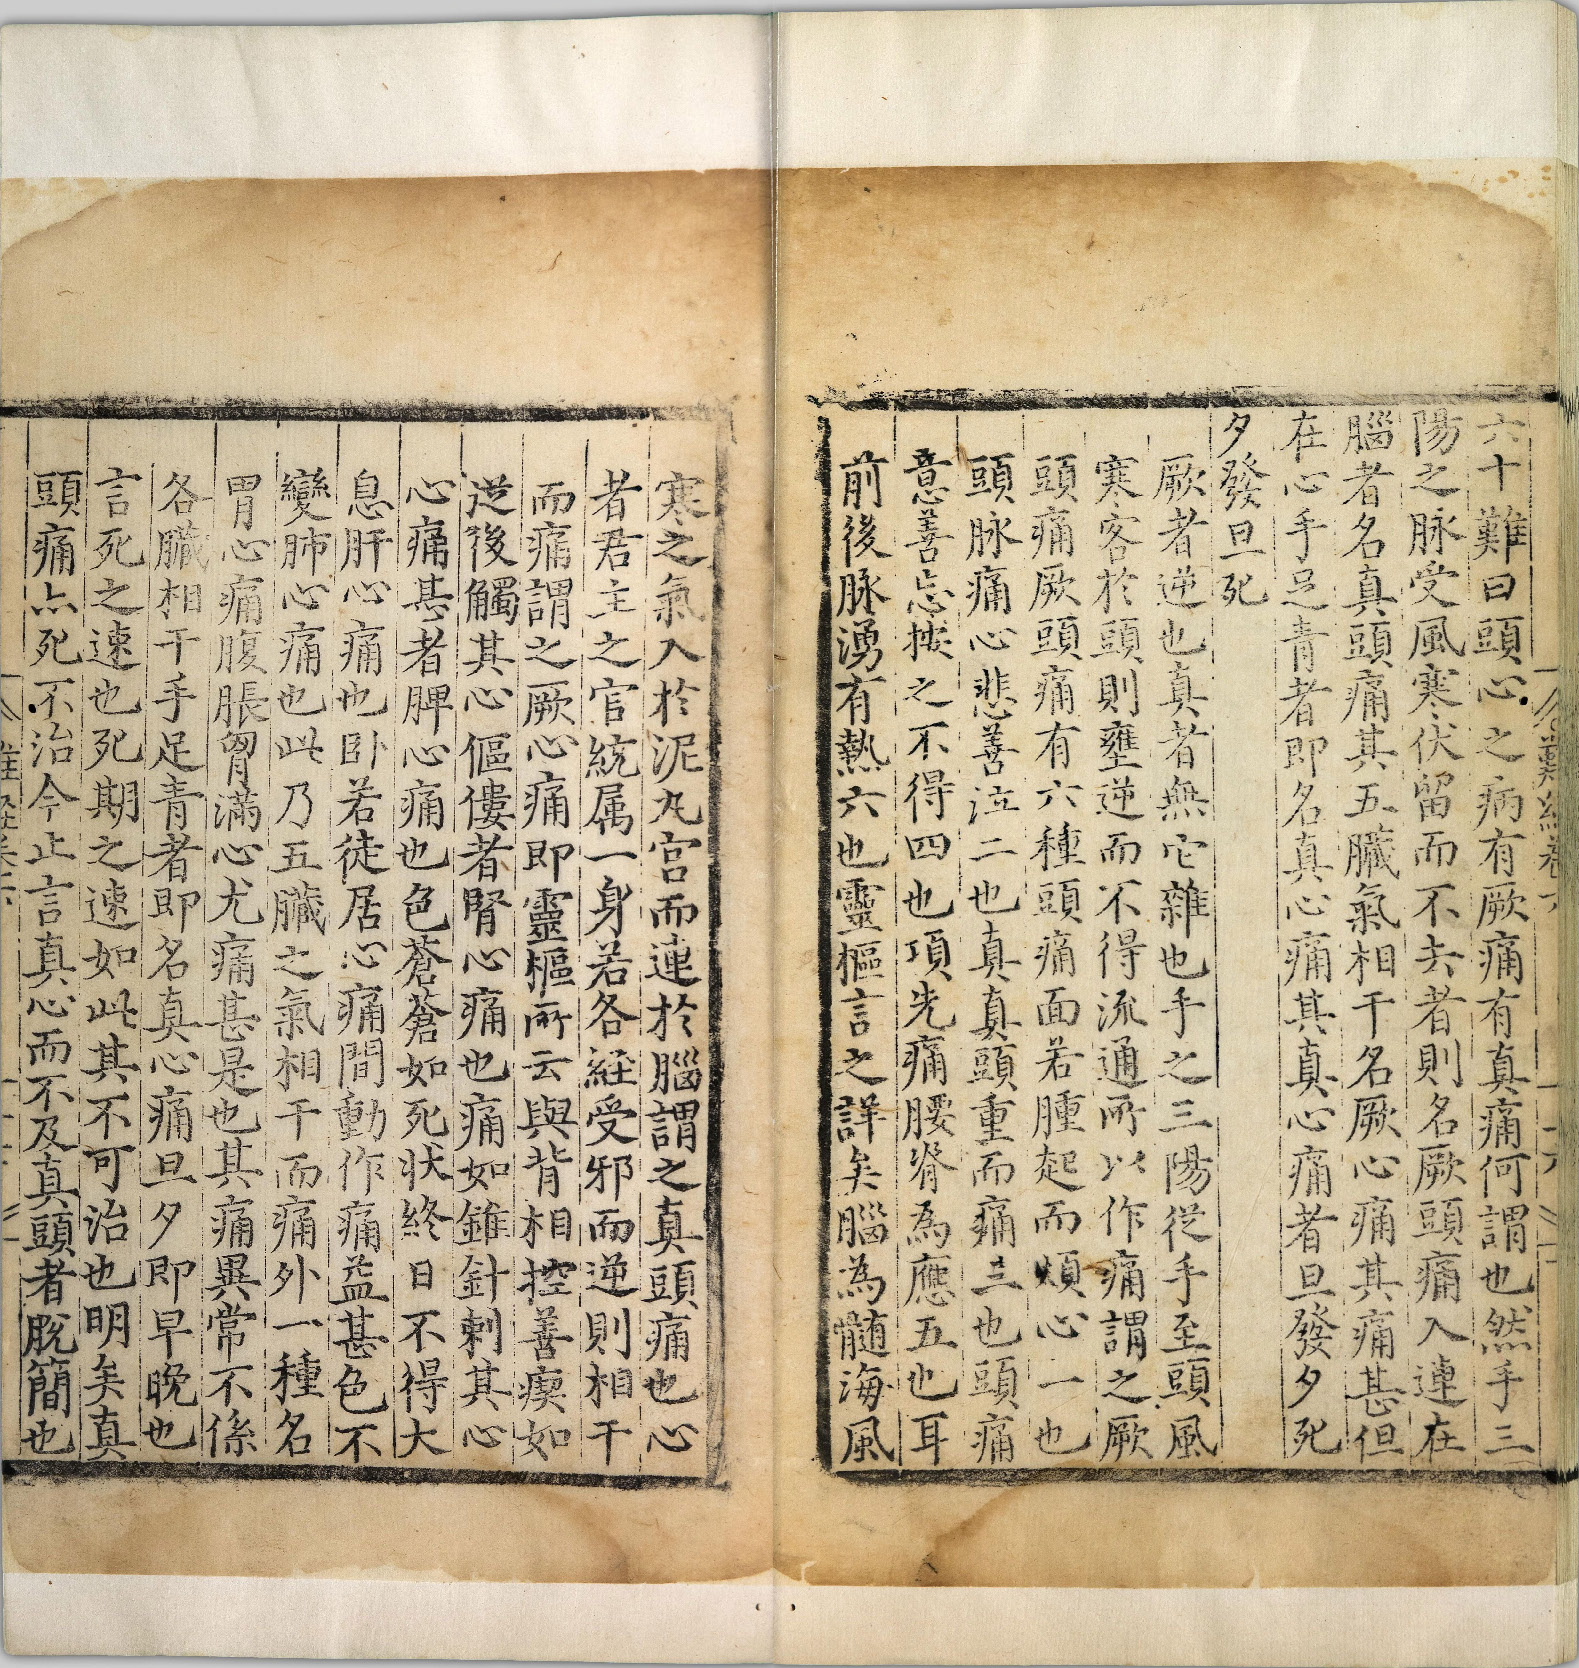 六十難曰頭心之病有厥痛有真痛何謂也然手三
陽之脉受風寒伏留而不去者則名厥頭痛入連在
腦者名真頭痛其五臟氣相干名厥心痛其痛甚但
在心手足青者即名真心痛其真心痛者旦發夕死
夕發旦死
厥者逆也真者無它雜也手之三陽從手至頭風
寒客於頭則壅逆而不得流通所以作痛謂之厥
頭痛厥頭痛有六種頭痛面若腫起而煩心一也
頭脉痛心悲善泣二也真真頭重而痛三也頭痛
意善忘按之不得四也項先痛腰脊為應五也耳
前後脉湧有熱六也靈樞言之詳矣腦為髓海風
寒之氣入於泥丸宮而連於腦謂之真頭痛也心
者君主之官統属一身若各經受邪而逆則相干
而痛謂之厥心痛即靈樞所云與背相控善瘈如
從後觸其心傴僂者腎心痛也痛如錐針刺其心
心痛甚者脾心痛也色蒼蒼如死状終日不得大
息肝心痛也卧若徒居心痛間動作痛益甚色不
變肺心痛也此乃五臟之氣相干而痛外一種名
胃心痛腹脹胷滿心尤痛甚是也其痛異常不係
各臟相干手足青者即名真心痛旦夕即早晚也
言死之速也死期之速如此其不可治也明矣真
頭痛亦死不治今止言真心而不及真頭者脫簡也